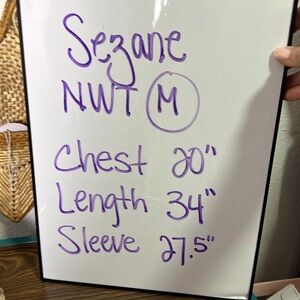 Sezane
NWT M
Chest 20"
Length 34"
Sleeve 27.5"